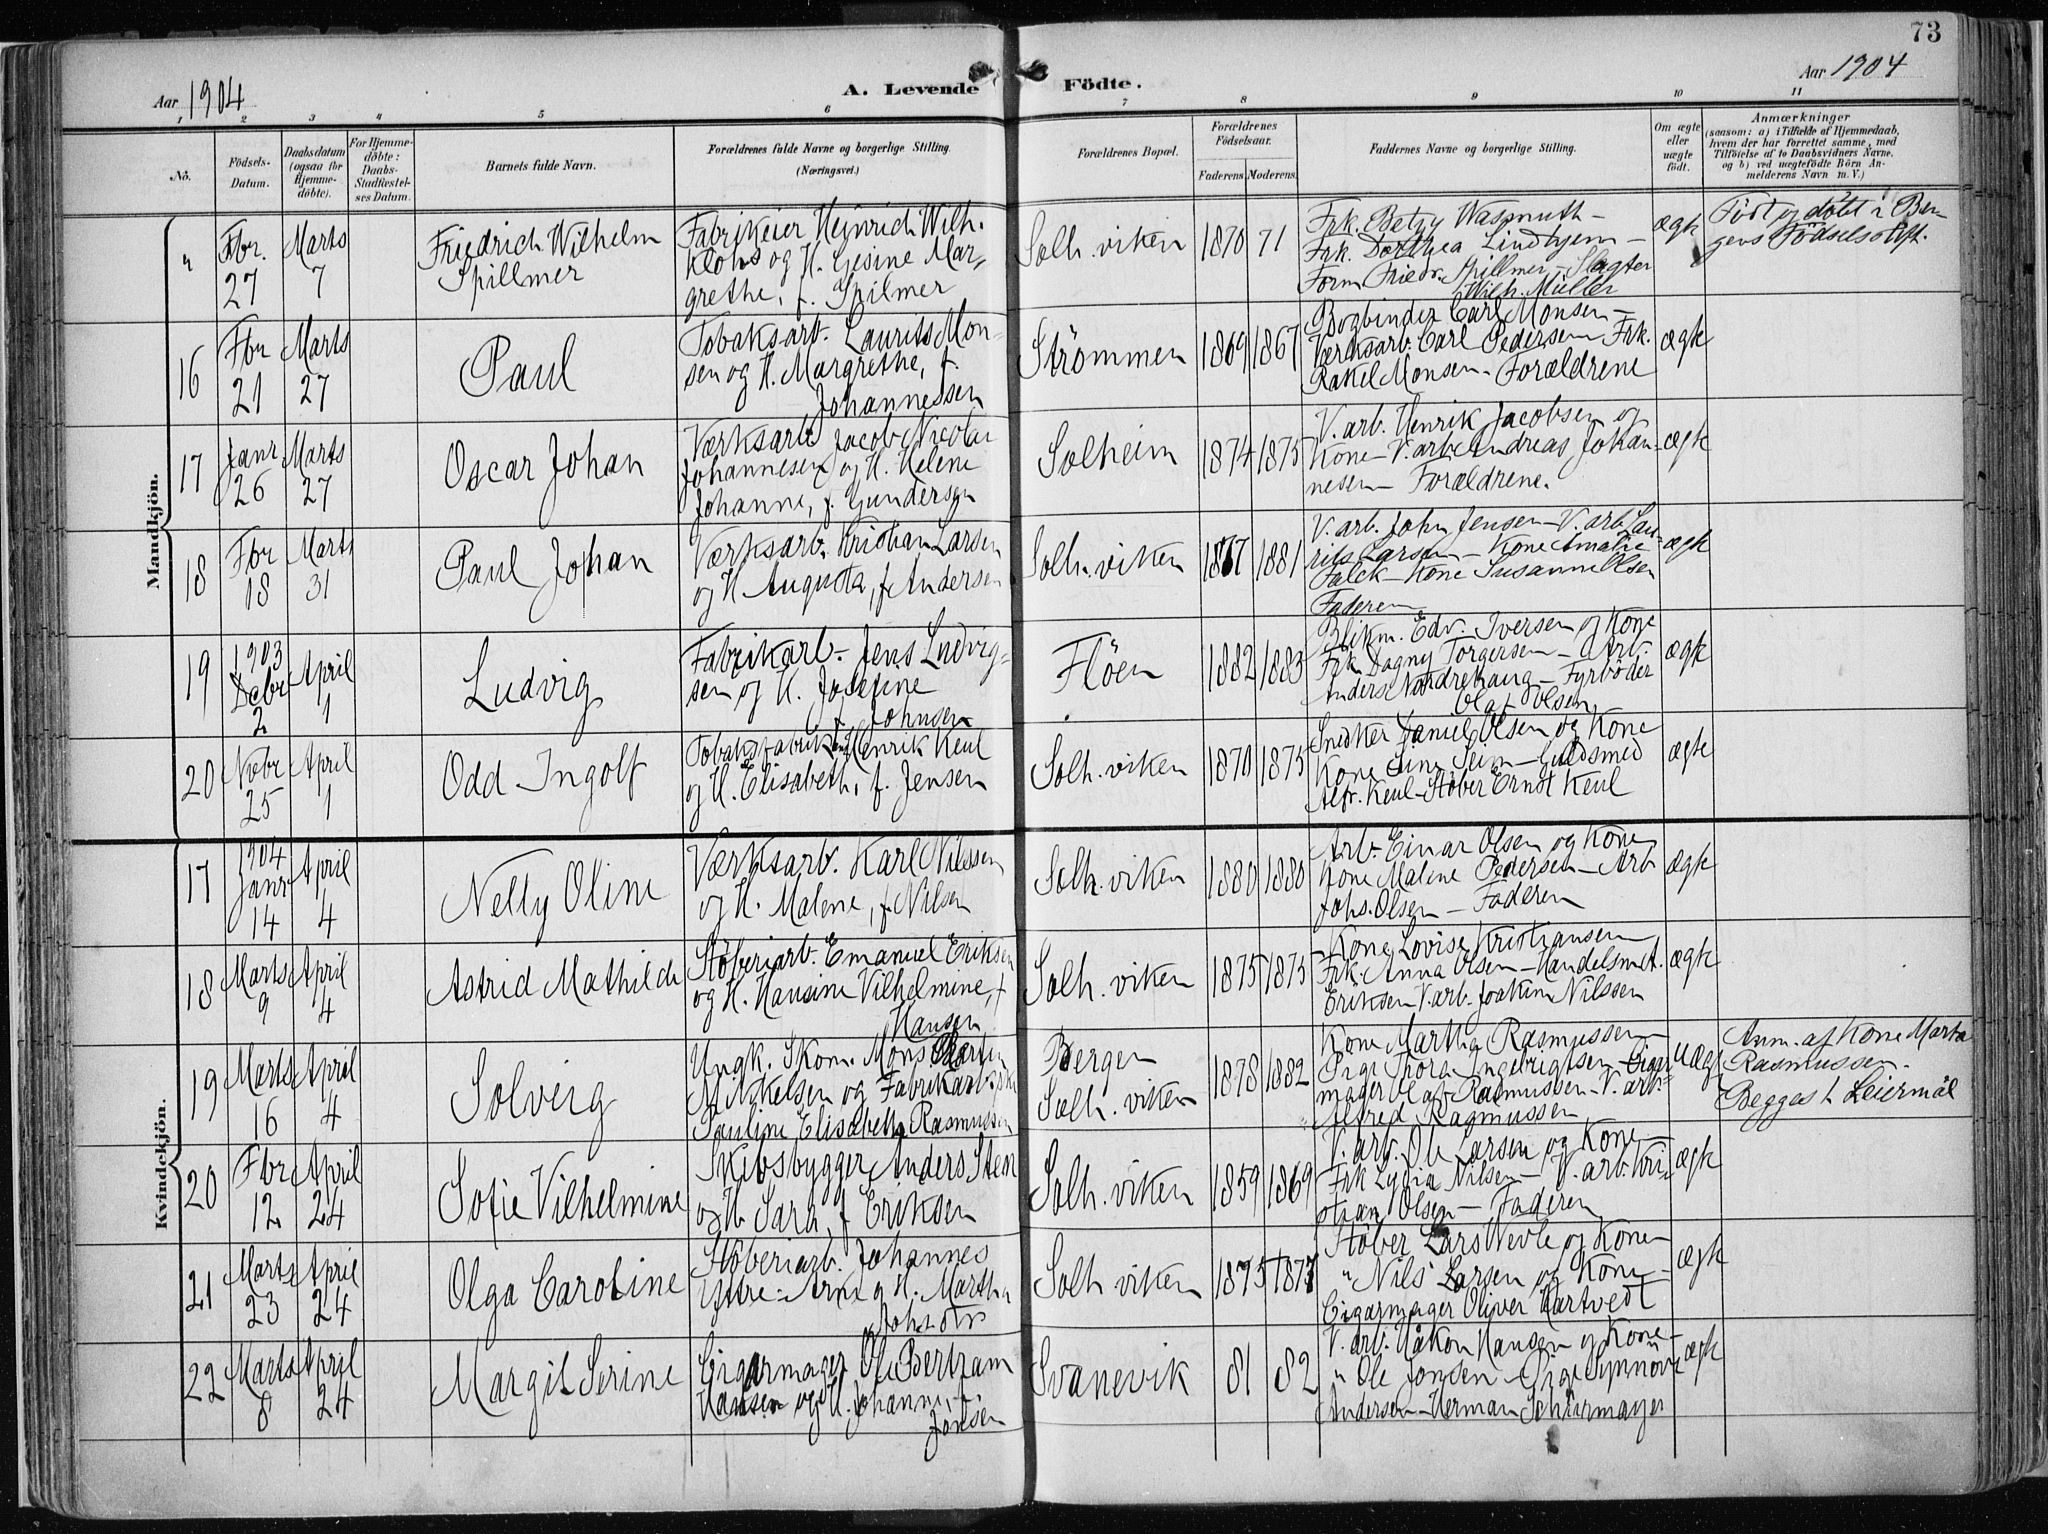 73
Aar 1904
A. Levende Födte.
Aar 1904
1 2 3 4 5 6 7 8 9 10 11
Nö.
Födsels-
Datum.
Daabsdatum
(ogsaa for
Hjemme-
döbte).
For Hjemme-
döbte:
Daabs-
Stadfæstel-
ses Datum.
Barnets fulde Navn.
Forældrenes fulde Navne og borgerlige Stilling.
(Næringsvei.)
Forældrenes Bopæl.
Forældrenes
Födselsaar.
Faderens. Moderens.
Faddernes Navne og borgerlige Stilling.
Om ægte
eller
uægte
født.
Anmærkninger
(saasom: a) i Tilfælde af Hjemmedaab,
hvem der har forrettet samme, med
Tilföielse af to Daabsvidners Navne,
og b) ved uægtefödte Börn An-
melderens Navn m. V.)
Mandkjön.
" Fbr. 27 Marts 7
Friedrich Wilhelm
Spillmer
Fabrikeier Heinrich Wilh.
Klohs og H. Gesine Mar-
grethe, f. Spilmer
Solh.viken 1870 71
Frk. Betzy Waspmuth -
Frk. Dorthea Lindhjem -
Form. Friedr. Spillmer - Slagter
Wilh. Müller
ægte
Födt og döbt i Ber-
gens Födselsstift.
16 Fbr 21 Marts 27
Paul
Tobaksarb. Laurits Mon-
sen og H. Margrethe, f.
Johannessen
Strömmen 1869 1867
Bogbinder Carl Monsen -
Værksarb. Carl Pedersen Frk.
Rakel Monsen - Forældrene
ægte
17 Janr 26 Marts 27
Oscar Johan
Værksarb. Jacob Nicolai
Johannesen og H. Helene
Johanne, f. Gundersen
Solheim 1874 1875
V. arb. Henrik Jacobsen og
Kone - V. arb. Andreas Johan-
nesen - Forældrene.
ægte
18 Fbr 18 Marts 31
Paul Johan
Værksarb. Kristian Larsen
og H. Augusta, f. Andersen
Solh.viken 1877 1881
V. arb. John Jensen - V. arb. Lau-
rits Larsen - Kone Amalie
Falck - Kone Susanne Olsen
Faderen
ægte
19 1903 Debr 2 April 1
Ludvig
Fabrikarb. Jens Ludvig-
sen og H. Josefine
f. Johnsen
Flöen 1882 1883
Blikm. Edv. Iversen og Kone
Frk. Dagny Torgersen - Arb.
Anders Nordrehaug - Fyrböder
Olaf Olsen
ægte
20 Nvbr 25 April 1
Odd Ingolf
Tobaksfabrik. Henrik Keul
og H. Elisabeth, f. Jensen
Solh.viken 1870 1875
Snedker Daniel Olsen og Kone
Kone Line Seim - Guldsmed
Alfr. Keul - Stöber Ernst Keul
ægte
Kvindekjön.
17 1904 Janr 14 April 4
Nelly Oline
Værksarb. Karl Nilssen
og H. Malene, f. Nilsen
Solh.viken 1880 1880
Arb. Einar Olsen og Kone
Kone Malene Pedersen - Arb
Johs. Olsen - Faderen
ægte
18 Marts 9 April 4
Astrid Mathilde
Stöberiarb. Emanuel Eriksen
og H. Hansine Vilhelmine, f.
Hansen
Solh.viken 1875 1875
Kone Lovise Kristiansen
Frk. Anna Olsen - Handelsm. A.
Eriksen V. arb. Joakim Nilssen
ægte
19 Marts 16 April 4
Solveig
Ungk. Skom. Mons
Mikkelsen og Fabrikarb. pike
Pauline Elisabeth Rasmussen
Bergen
Solh.viken 1878 1882
Kone Martha Rasmussen
Pige Thora Ingebrigtsen - Cigar-
mager Olaf Rasmussen - V. arb.
Alfred Rasmussen
uægte
Anm. af Kone Marta
Rasmussen.
Begges 1 Leiermål
20 Fbr 12 April 24
Sofie Vilhelmine
Skibsbygger Anders Sten
og H. Sara, f. Eriksen
Solh.viken 1859 1869
V. arb. Ole Larsen og Kone -
Frk Lydia Nilsen - V. arb. Kri-
stian Olsen - Faderen
ægte
21 Marts 23 April 24
Olga Caroline
Stöberiarb. Johannes
Yttre-Arne og H. Martha
Johsdtr
Solh.viken 1875 1877
Stöber Lars Nevle og Kone
" Nils Larsen og Kone -
Cigarmager Oliver Hartvedt
ægte
22 Marts 8 April 24
Margit Serine
Cigarmager Ole Bertram
Hansen og H. Johanne, f.
Jonsen
Svanevik 81 82
V. arb. Håkon Hansen og Kone -
" Ole Jonsen - Pige Synnöve
Andersen - Herman Schürmayer
ægte